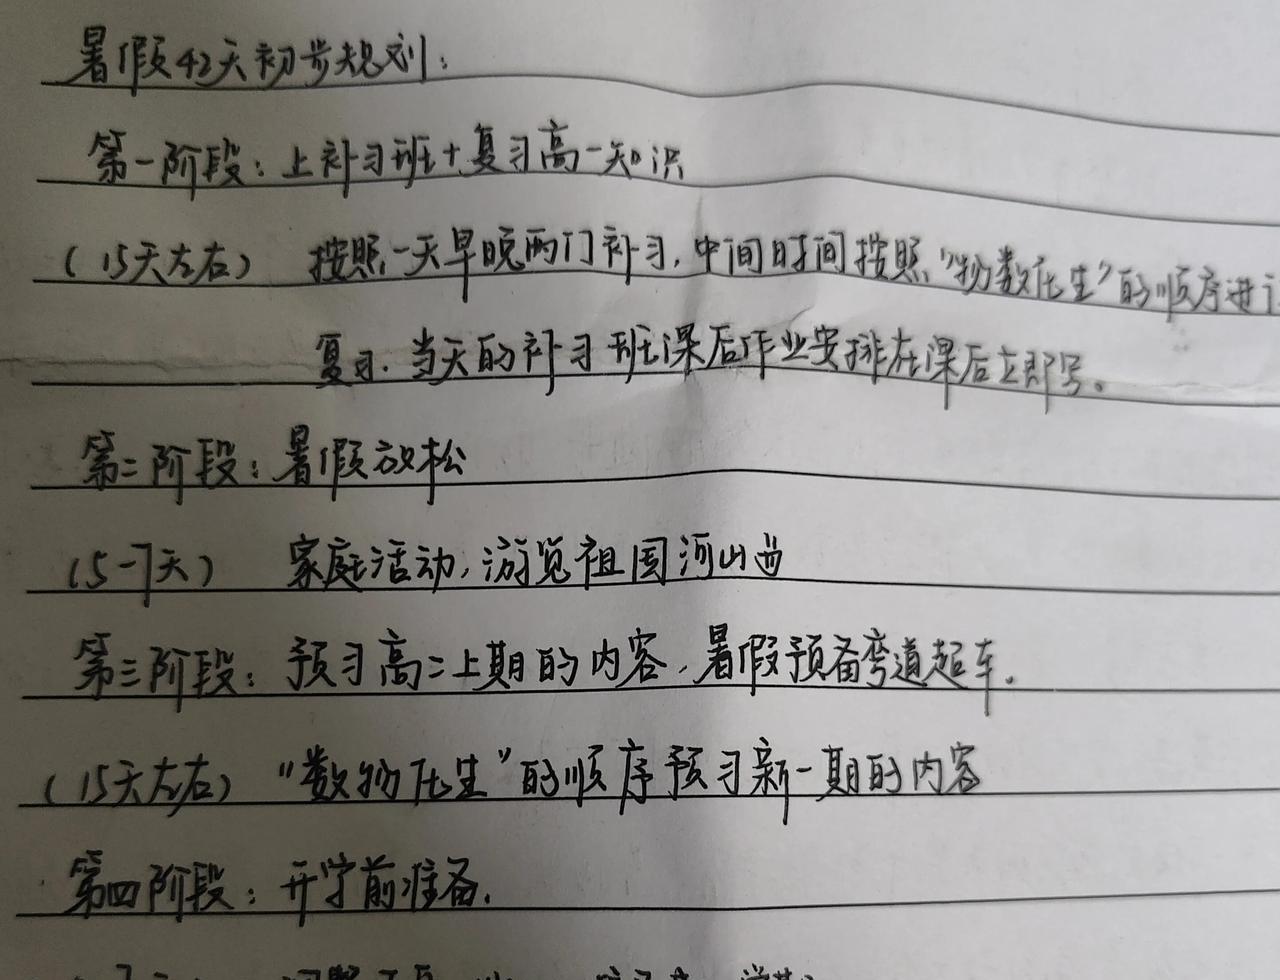 暑假42天初步规划：
第一阶段：上补习班+复习高一知识
（15天左右） 按照一天早晚两门补习，中间时间按照“物数化生”的顺序进
复习．当天的补习班课后作业安排在课后立即写。
第二阶段：暑假放松
（5-7天） 家庭活动，游览祖国河山
第三阶段：预习高二上期的内容，暑假预备弯道超车．
（15天左右） “数物化生”的顺序预习新一期的内容
第四阶段：开学前准备．